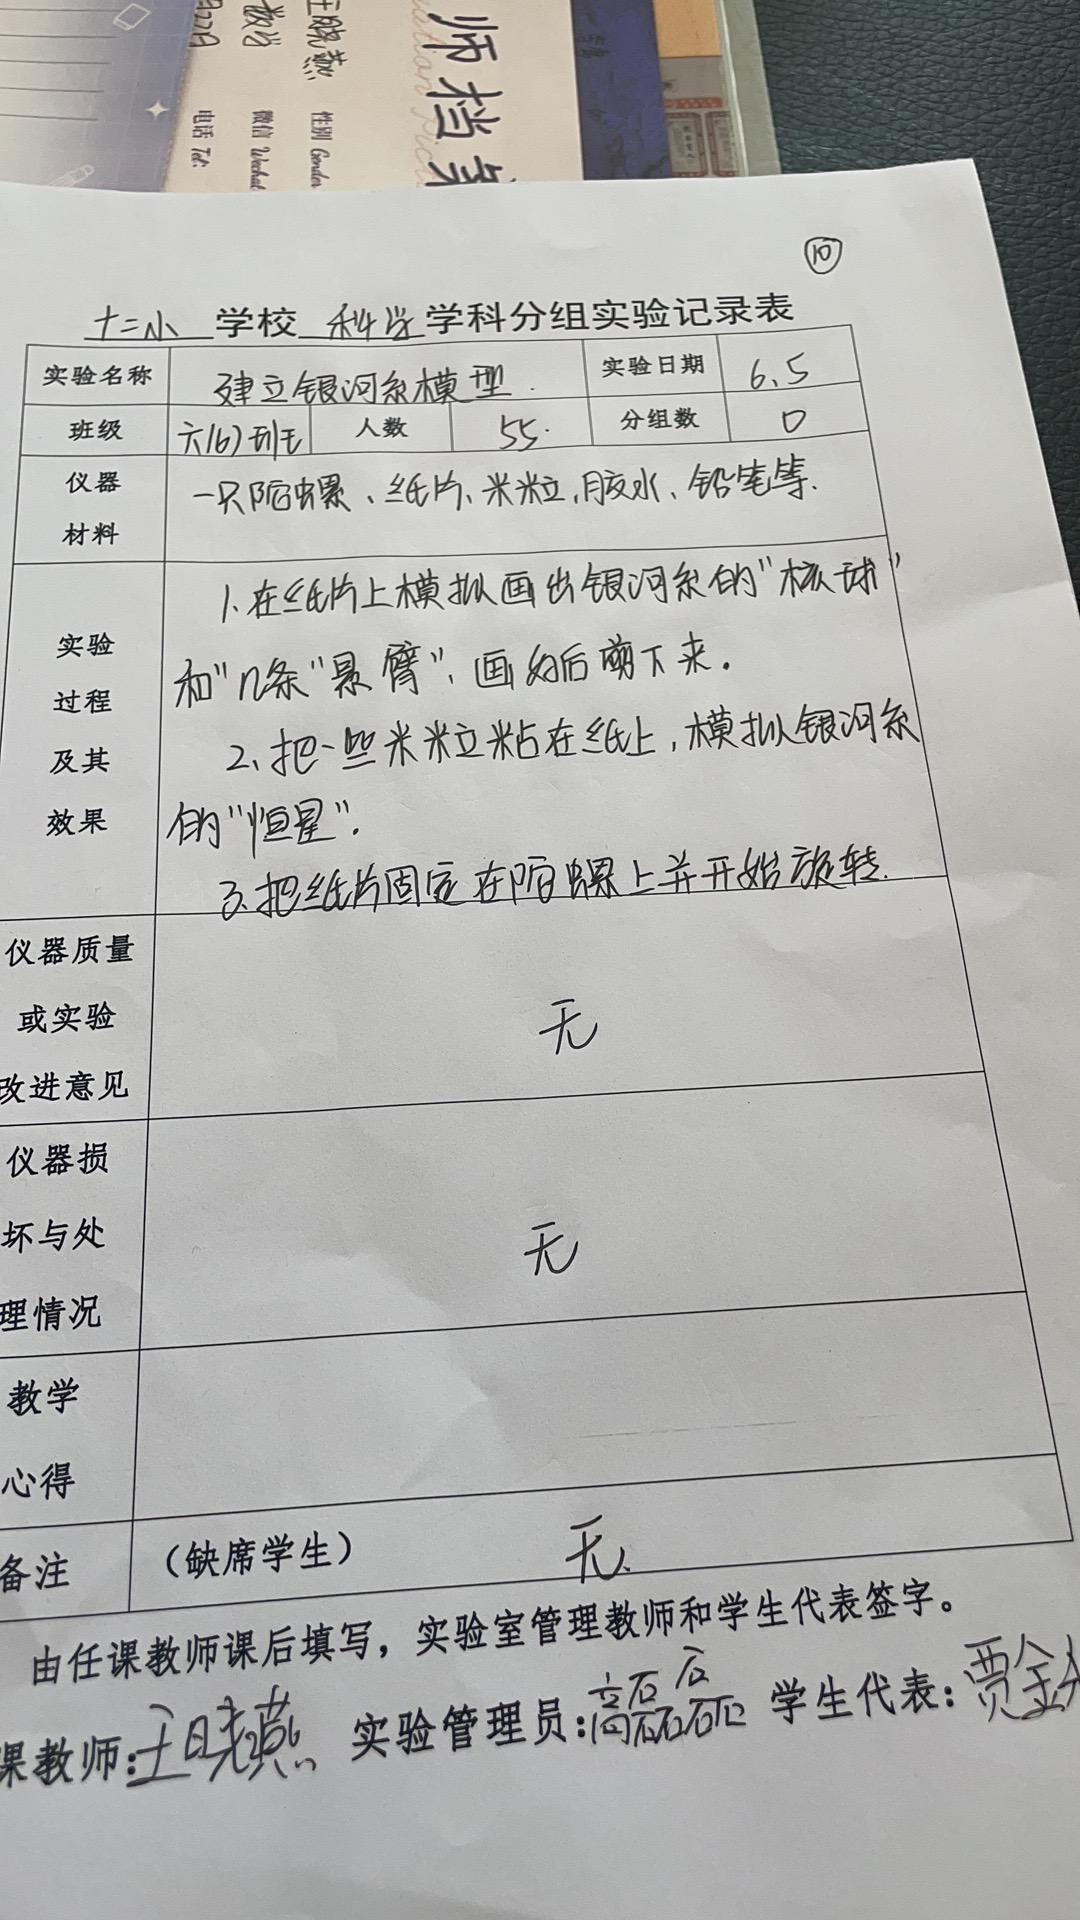 师档案
王晓燕
性别 Gender
数学
微信 Wechat
月22日
电话 Tel:
10
十二小 学校 科学 学科分组实验记录表
实验名称 建立银河系模型. 实验日期 6.5
班级 六(6)班 人数 55. 分组数 0
仪器材料 一只陀螺、纸片、米粒,胶水、铅笔等.
实验过程及其效果
1.在纸片上模拟画出银河系的"核球"
和"几条"悬臂",画好后剪下来.
2、把一些米粒粘在纸上,模拟银河系
的"恒星".
3.把纸片固定在陀螺上并开始旋转.
仪器质量或实验改进意见 无
仪器损坏与处理情况 无
教学心得
备注 (缺席学生) 无.
由任课教师课后填写,实验室管理教师和学生代表签字。
课教师:王晓燕 实验管理员:高磊 学生代表:贾金